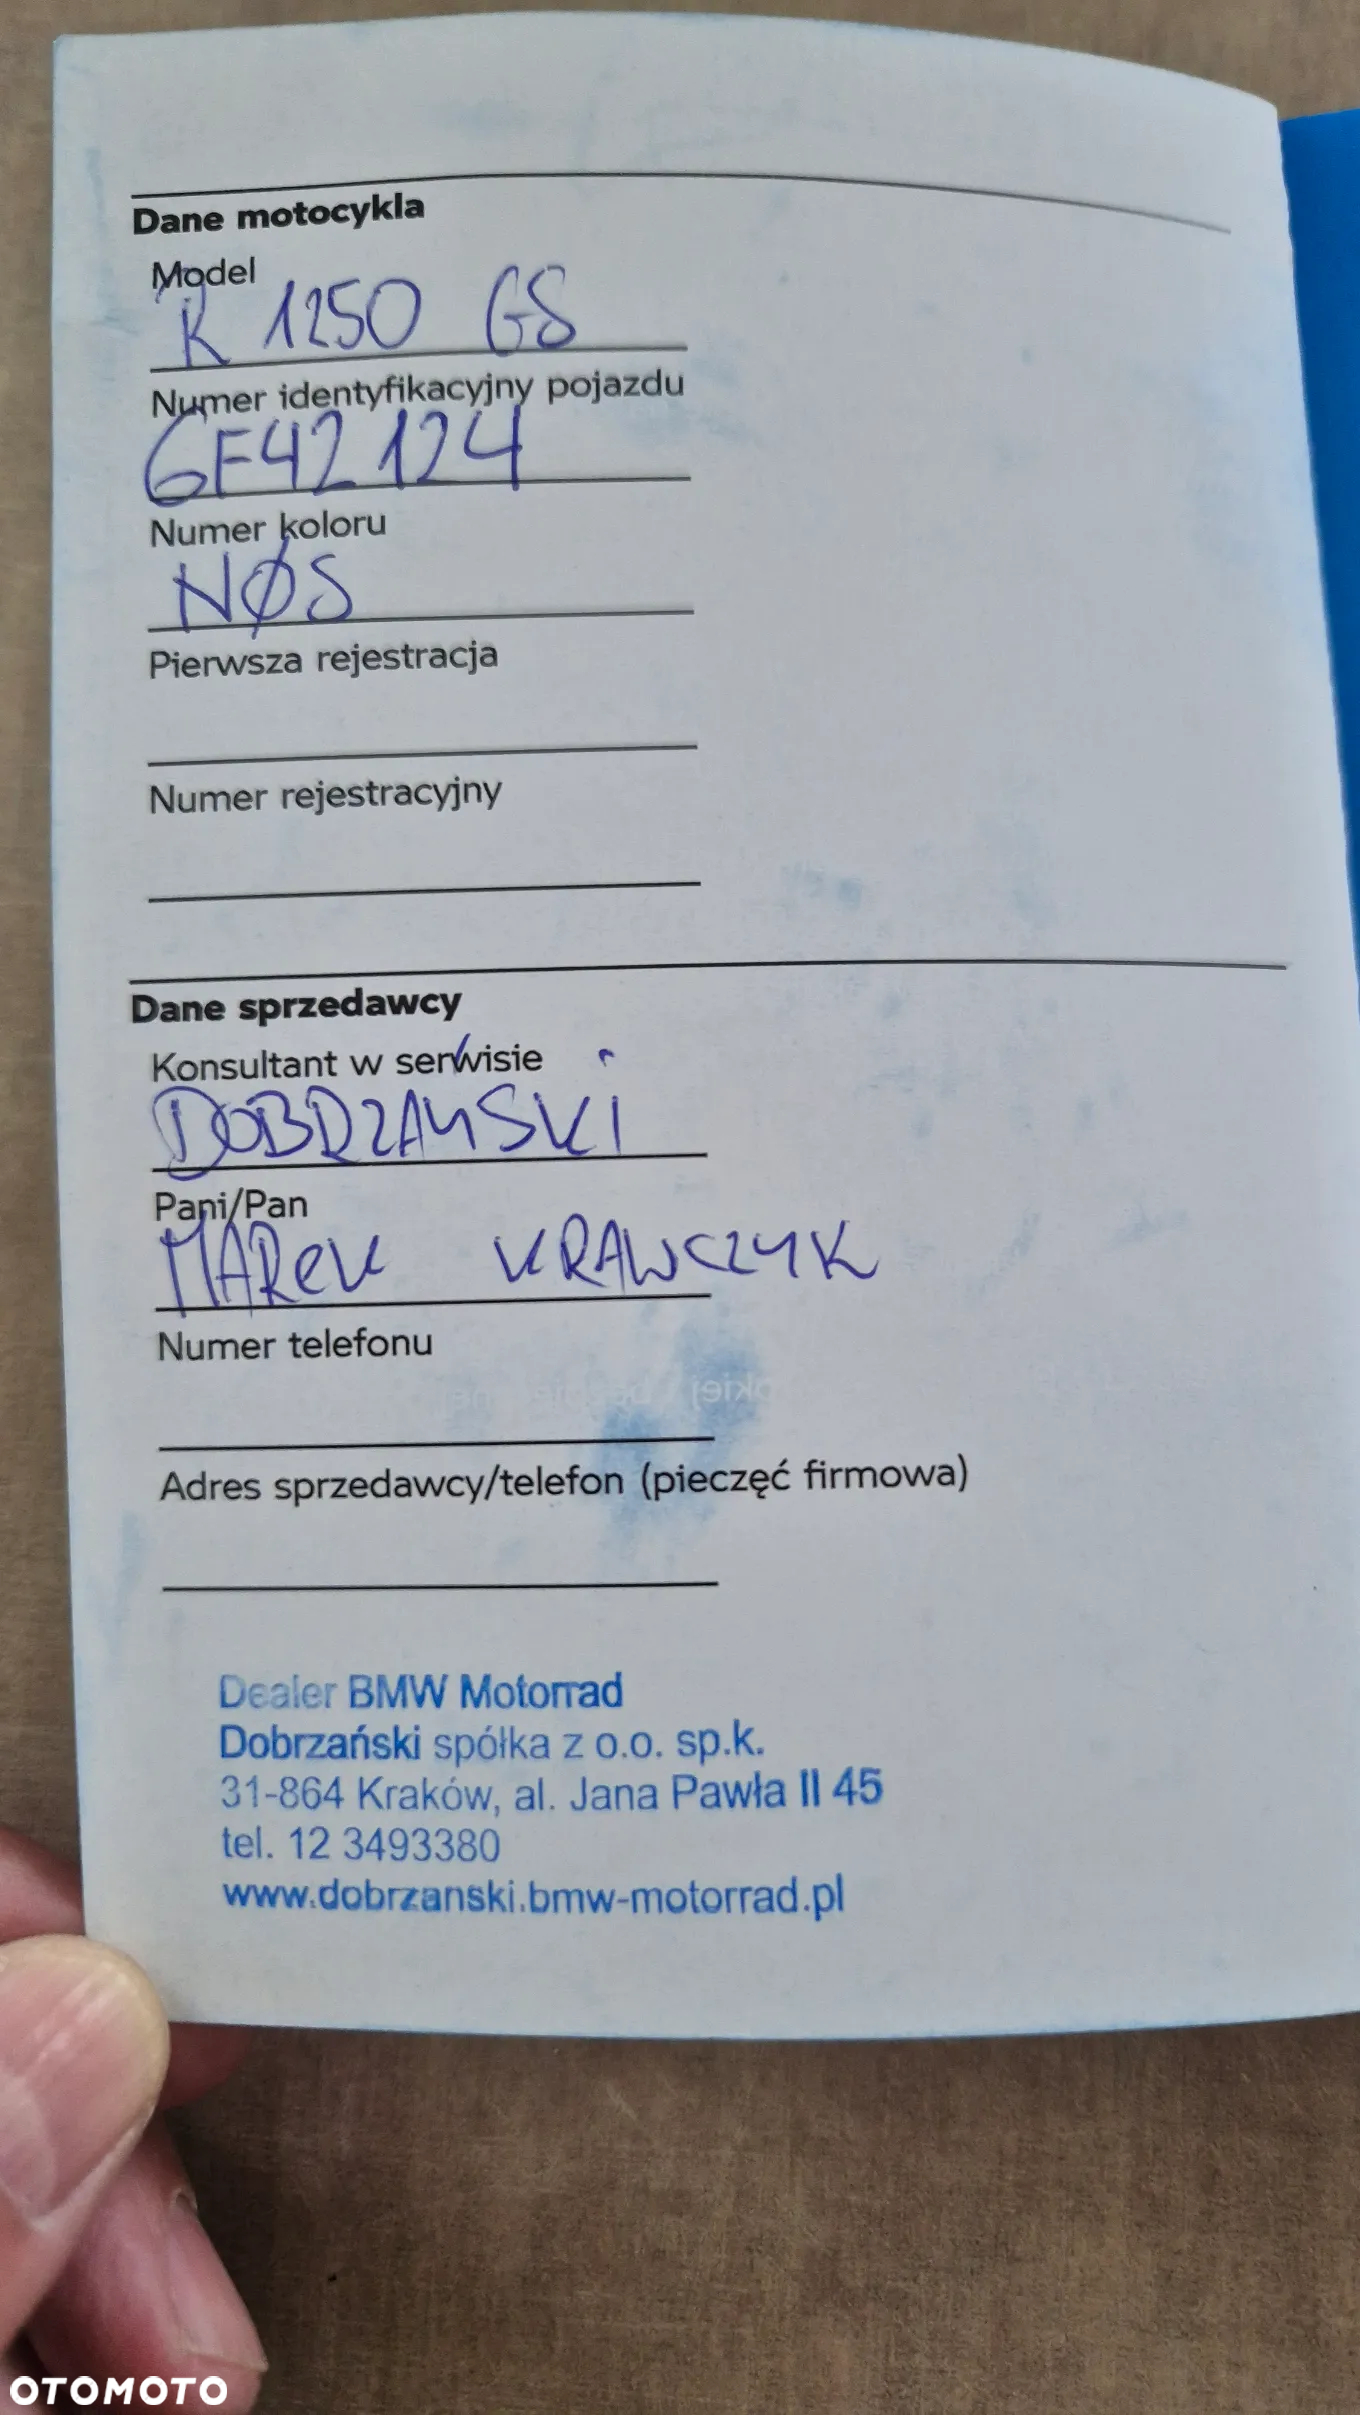 Dane motocykla
Model
R 1250 GS
Numer identyfikacyjny pojazdu
6F42124
Numer koloru
NØS
Pierwsza rejestracja
Numer rejestracyjny
Dane sprzedawcy
Konsultant w serwisie
DOBRZAŃSKI
Pani/Pan
MAREK KRAWCZYK
Numer telefonu
Adres sprzedawcy/telefon (pieczęć firmowa)
Dealer BMW Motorrad
Dobrzański spółka z o.o. sp.k.
31-864 Kraków, al. Jana Pawła II 45
tel. 12 3493380
www.dobrzanski.bmw-motorrad.pl
OTOMOTO